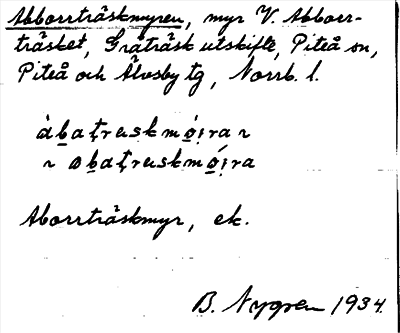 Abborrträskmyren, myr V. Abborr-
träsket, Gråträsk utskifte, Piteå sn,
Piteå och Älvsby tg, Norrb. l.
àbatraskmóira ~
~ abatraskmóira
Aborrträskmyr, ek.
B. Nygren 1934.